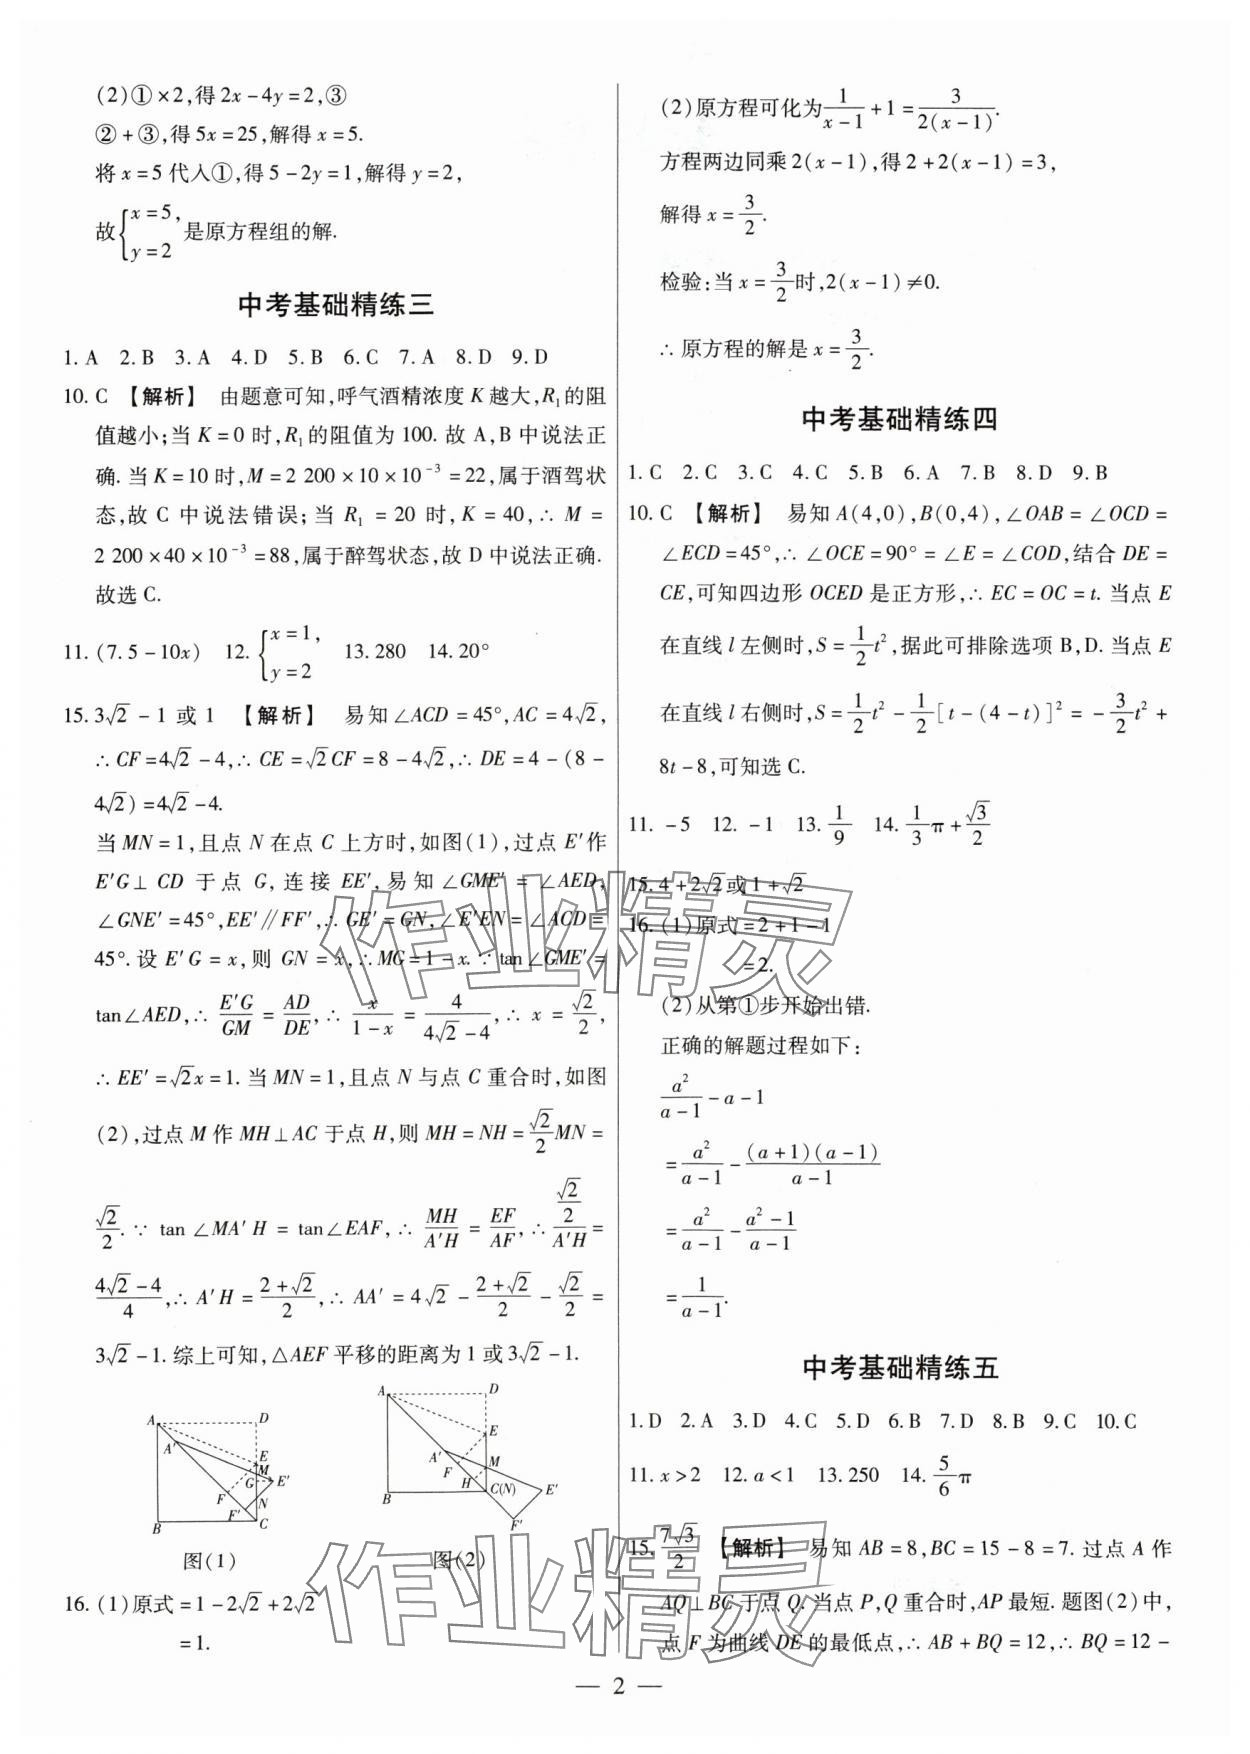 (2)①×2,得2x-4y=2,③
②+③,得5x=25,解得x=5.
将x=5代入①,得5-2y=1,解得y=2,
故{x=5, y=2 是原方程组的解.
中考基础精练三
1. A 2. B 3. A 4. D 5. B 6. C 7. A 8. D 9. D
10. C 【解析】 由题意可知,呼气酒精浓度K越大,R₁的阻
值越小;当K=0时,R₁的阻值为100.故A,B中说法正
确.当K=10时,M=2 200×10×10⁻³=22,属于酒驾状
态,故C中说法错误;当R₁=20时,K=40,∴M=
2 200×40×10⁻³=88,属于醉驾状态,故D中说法正确.
故选C.
11. (7.5-10x) 12. {x=1, y=2 13. 280 14. 20°
15. 3√2-1或1 【解析】 易知∠ACD=45°,AC=4√2,
∴CF=4√2-4,∴CE=√2CF=8-4√2,∴DE=4-(8-
4√2)=4√2-4.
当MN=1,且点N在点C上方时,如图(1),过点E′作
E′G⊥CD于点G,连接EE′,易知∠GME′=∠AED,
∠GNE′=45°,EE′∥FF′,∴GE′=GN,∠E′EN=∠ACD=
45°.设E′G=x,则GN=x,∴MG=1-x.∵tan∠GME′=
tan∠AED,∴E′G/GM=AD/DE,∴x/(1-x)=4/(4√2-4),∴x=√2/2,
∴EE′=√2x=1.当MN=1,且点N与点C重合时,如图
(2),过点M作MH⊥AC于点H,则MH=NH=√2/2MN=
√2/2.∵tan∠MA′H=tan∠EAF,∴MH/A′H=EF/AF,∴(√2/2)/A′H=
(4√2-4)/4,∴A′H=(2+√2)/2,∴AA′=4√2-(2+√2)/2-√2/2=
3√2-1.综上可知,△AEF平移的距离为1或3√2-1.
A D A′ E M G E′ F F′ N B C
图(1)
A D E A′ M F H C(N) E′ B F′
图(2)
16. (1)原式=1-2√2+2√2
=1.
(2)原方程可化为1/(x-1)+1=3/(2(x-1)).
方程两边同乘2(x-1),得2+2(x-1)=3,
解得x=3/2.
检验:当x=3/2时,2(x-1)≠0.
∴原方程的解是x=3/2.
中考基础精练四
1. C 2. C 3. C 4. C 5. B 6. A 7. B 8. D 9. B
10. C 【解析】 易知A(4,0),B(0,4),∠OAB=∠OCD=
∠ECD=45°,∴∠OCE=90°=∠E=∠COD,结合DE=
CE,可知四边形OCED是正方形,∴EC=OC=t.当点E
在直线l左侧时,S=1/2t²,据此可排除选项B,D.当点E
在直线l右侧时,S=1/2t²-1/2[t-(4-t)]²=-3/2t²+
8t-8,可知选C.
11. -5 12. -1 13. 1/9 14. 1/3π+√3/2
15. 4+2√2或1+√2
16. (1)原式=2+1-1
=2.
(2)从第①步开始出错.
正确的解题过程如下:
a²/(a-1)-a-1
=a²/(a-1)-(a+1)(a-1)/(a-1)
=a²/(a-1)-(a²-1)/(a-1)
=1/(a-1).
中考基础精练五
1. D 2. A 3. D 4. C 5. D 6. B 7. D 8. B 9. C 10. C
11. x>2 12. a<1 13. 250 14. 5/6π
15. 7√3/2 【解析】 易知AB=8,BC=15-8=7.过点A作
AQ⊥BC于点Q.当点P,Q重合时,AP最短.题图(2)中,
点F为曲线DE的最低点,∴AB+BQ=12,∴BQ=12-
— 2 —
作业精灵
作业精灵